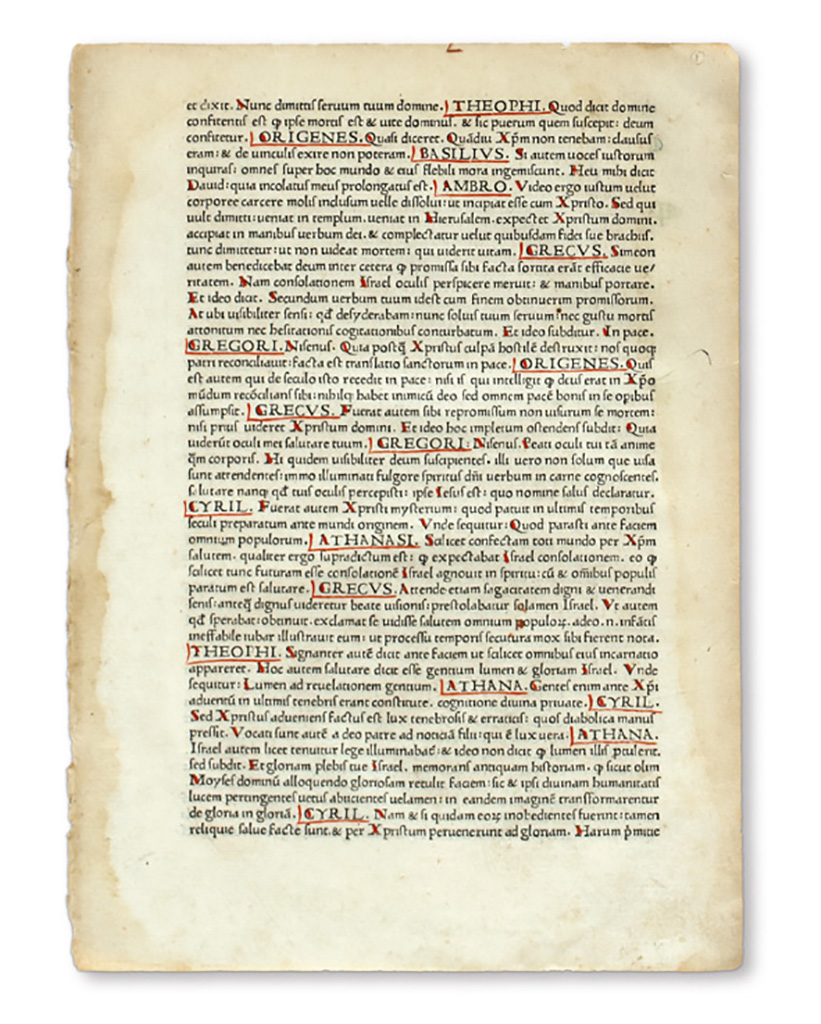 et dixit. Nunc dimittis seruum tuum domine. THEOPHI. Quod dicit domine
confitentis est ꝙ ipse mortis est & uite dominus. & sic puerum quem suscepit: deum
confitetur. ORIGENES. Quasi diceret. Quādiu Xp̄m non tenebam: clausus
eram: & de uinculis exire non poteram. BASILIVS. Si autem uoces iustorum
inquiras: omnes super hoc mundo & eius flebili mora ingemiscunt. Heu mihi dicit
Dauid: quia incolatus meus prolongatus est. AMBRO. Video ergo iustum uelut
corporee carcere molis inclusum uelle dissolui: ut incipiat esse cum Xpristo. Sed qui
uult dimitti: ueniat in templum. ueniat in Hierusalem. expectet Xpristum domini.
accipiat in manibus uerbum dei. & complectatur uelut quibusdam fidei sue brachiis.
tunc dimittetur: ut non uideat mortem: qui uiderit uitam. GRECVS. Simeon
autem benedicebat deum inter cetera ꝙ promissa sibi facta sortita erāt efficacie ue/
ritatem. Nam consolationem Israel oculis perspicere meruit: & manibus portare.
Et ideo dicit. Secundum uerbum tuum idest cum finem obtinuerim promissorum.
At ubi uisibiliter sensi: qđ desyderabam: nunc soluis tuum seruum: nec gustu mortis
attonitum nec hesitationis cogitationibus conturbatum. Et ideo subditur. In pace.
GREGORI. Nisenus. Quia postq̄ Xpristus culpā hostilē destruxit: nos quoqꝫ
patri reconciliauit: facta est translatio sanctorum in pace. ORIGENES. Quis
est autem qui de seculo isto recedit in pace: nisi is qui intelligit ꝙ deus erat in Xp̄o
mūdum recōcilians sibi: nihilqꝫ habet inimicū deo sed omnem pacē bonis in se opibus
assumpsit. GRECVS. Fuerat autem sibi repromissum non uisurum se mortem:
nisi prius uideret Xpristum domini. Et ideo hoc impletum ostendens subdit: Quia
uiderūt oculi mei salutare tuum. GREGORI: Nisenus. Beati oculi tui tā anime
q̄m corporis. Hi quidem uisibiliter deum suscipientes. illi uero non solum que uisa
sunt attendentes: immo illuminati fulgore spiritus dn̄i uerbum in carne cognoscentes.
salutare nanqꝫ qđ tuis oculis percepisti: ipse Iesus est: quo nomine salus declaratur.
CYRIL. Fuerat autem Xpristi mysterium: quod patuit in ultimis temporibus
seculi preparatum ante mundi originem. Vnde sequitur: Quod parasti ante faciem
omnium populorum. ATHANASI. Scilicet confectam toti mundo per Xp̄m
salutem. qualiter ergo supradictum est: ꝙ expectabat Israel consolationem. eo ꝙ
scilicet tunc futuram esse consolationē Israel agnouit in spiritu: cū & om̄ibus populis
paratum est salutare. GRECVS. Attende etiam sagacitatem digni & uenerandi
senis: anteq̄ dignus uideretur beate uisionis: prestolabatur solamen Israel. Vt autem
qđ sperabat: obtinuit. exclamat se uidisse salutem omnium populoꝝ. adeo. n. infātis
ineffabile iubar illustrauit eum: ut processu temporis secutura mox sibi fierent nota.
THEOPHI. Signanter autē dicit ante faciem ut scilicet omnibus eius incarnatio
appareret. Hoc autem salutare dicit esse gentium lumen & gloriam Israel. Vnde
sequitur: Lumen ad reuelationem gentium. ATHANA. Gentes enim ante Xp̄i
aduentū in ultimis tenebris erant constitute. cognitione diuina priuate. CYRIL.
Sed Xpristus adueniens factus est lux tenebrosis & erraticis: quos diabolica manus
pressit. Vocati sunt autē a deo patre ad noticiā filii: qui ē lux uera. ATHANA.
Israel autem licet tenuiter lege illuminabat̄: & ideo non dicit ꝙ lumen illis patuerit.
sed subdit. Et gloriam plebis tue Israel. memorans antiquam historiam. ꝙ sicut olim
Moyses dominū alloquendo gloriosam retulit faciem: sic & ipsi diuinam humanitatis
lucem pertingentes uetus abiicientes uelamen: in eandem imaginē transformarentur
de gloria in gloriā. CYRIL. Nam & si quidam eoꝝ inobedientes fuerint: tamen
reliquie salue facte sunt. & per Xpristum peruenerunt ad gloriam. Harum p̄mitie